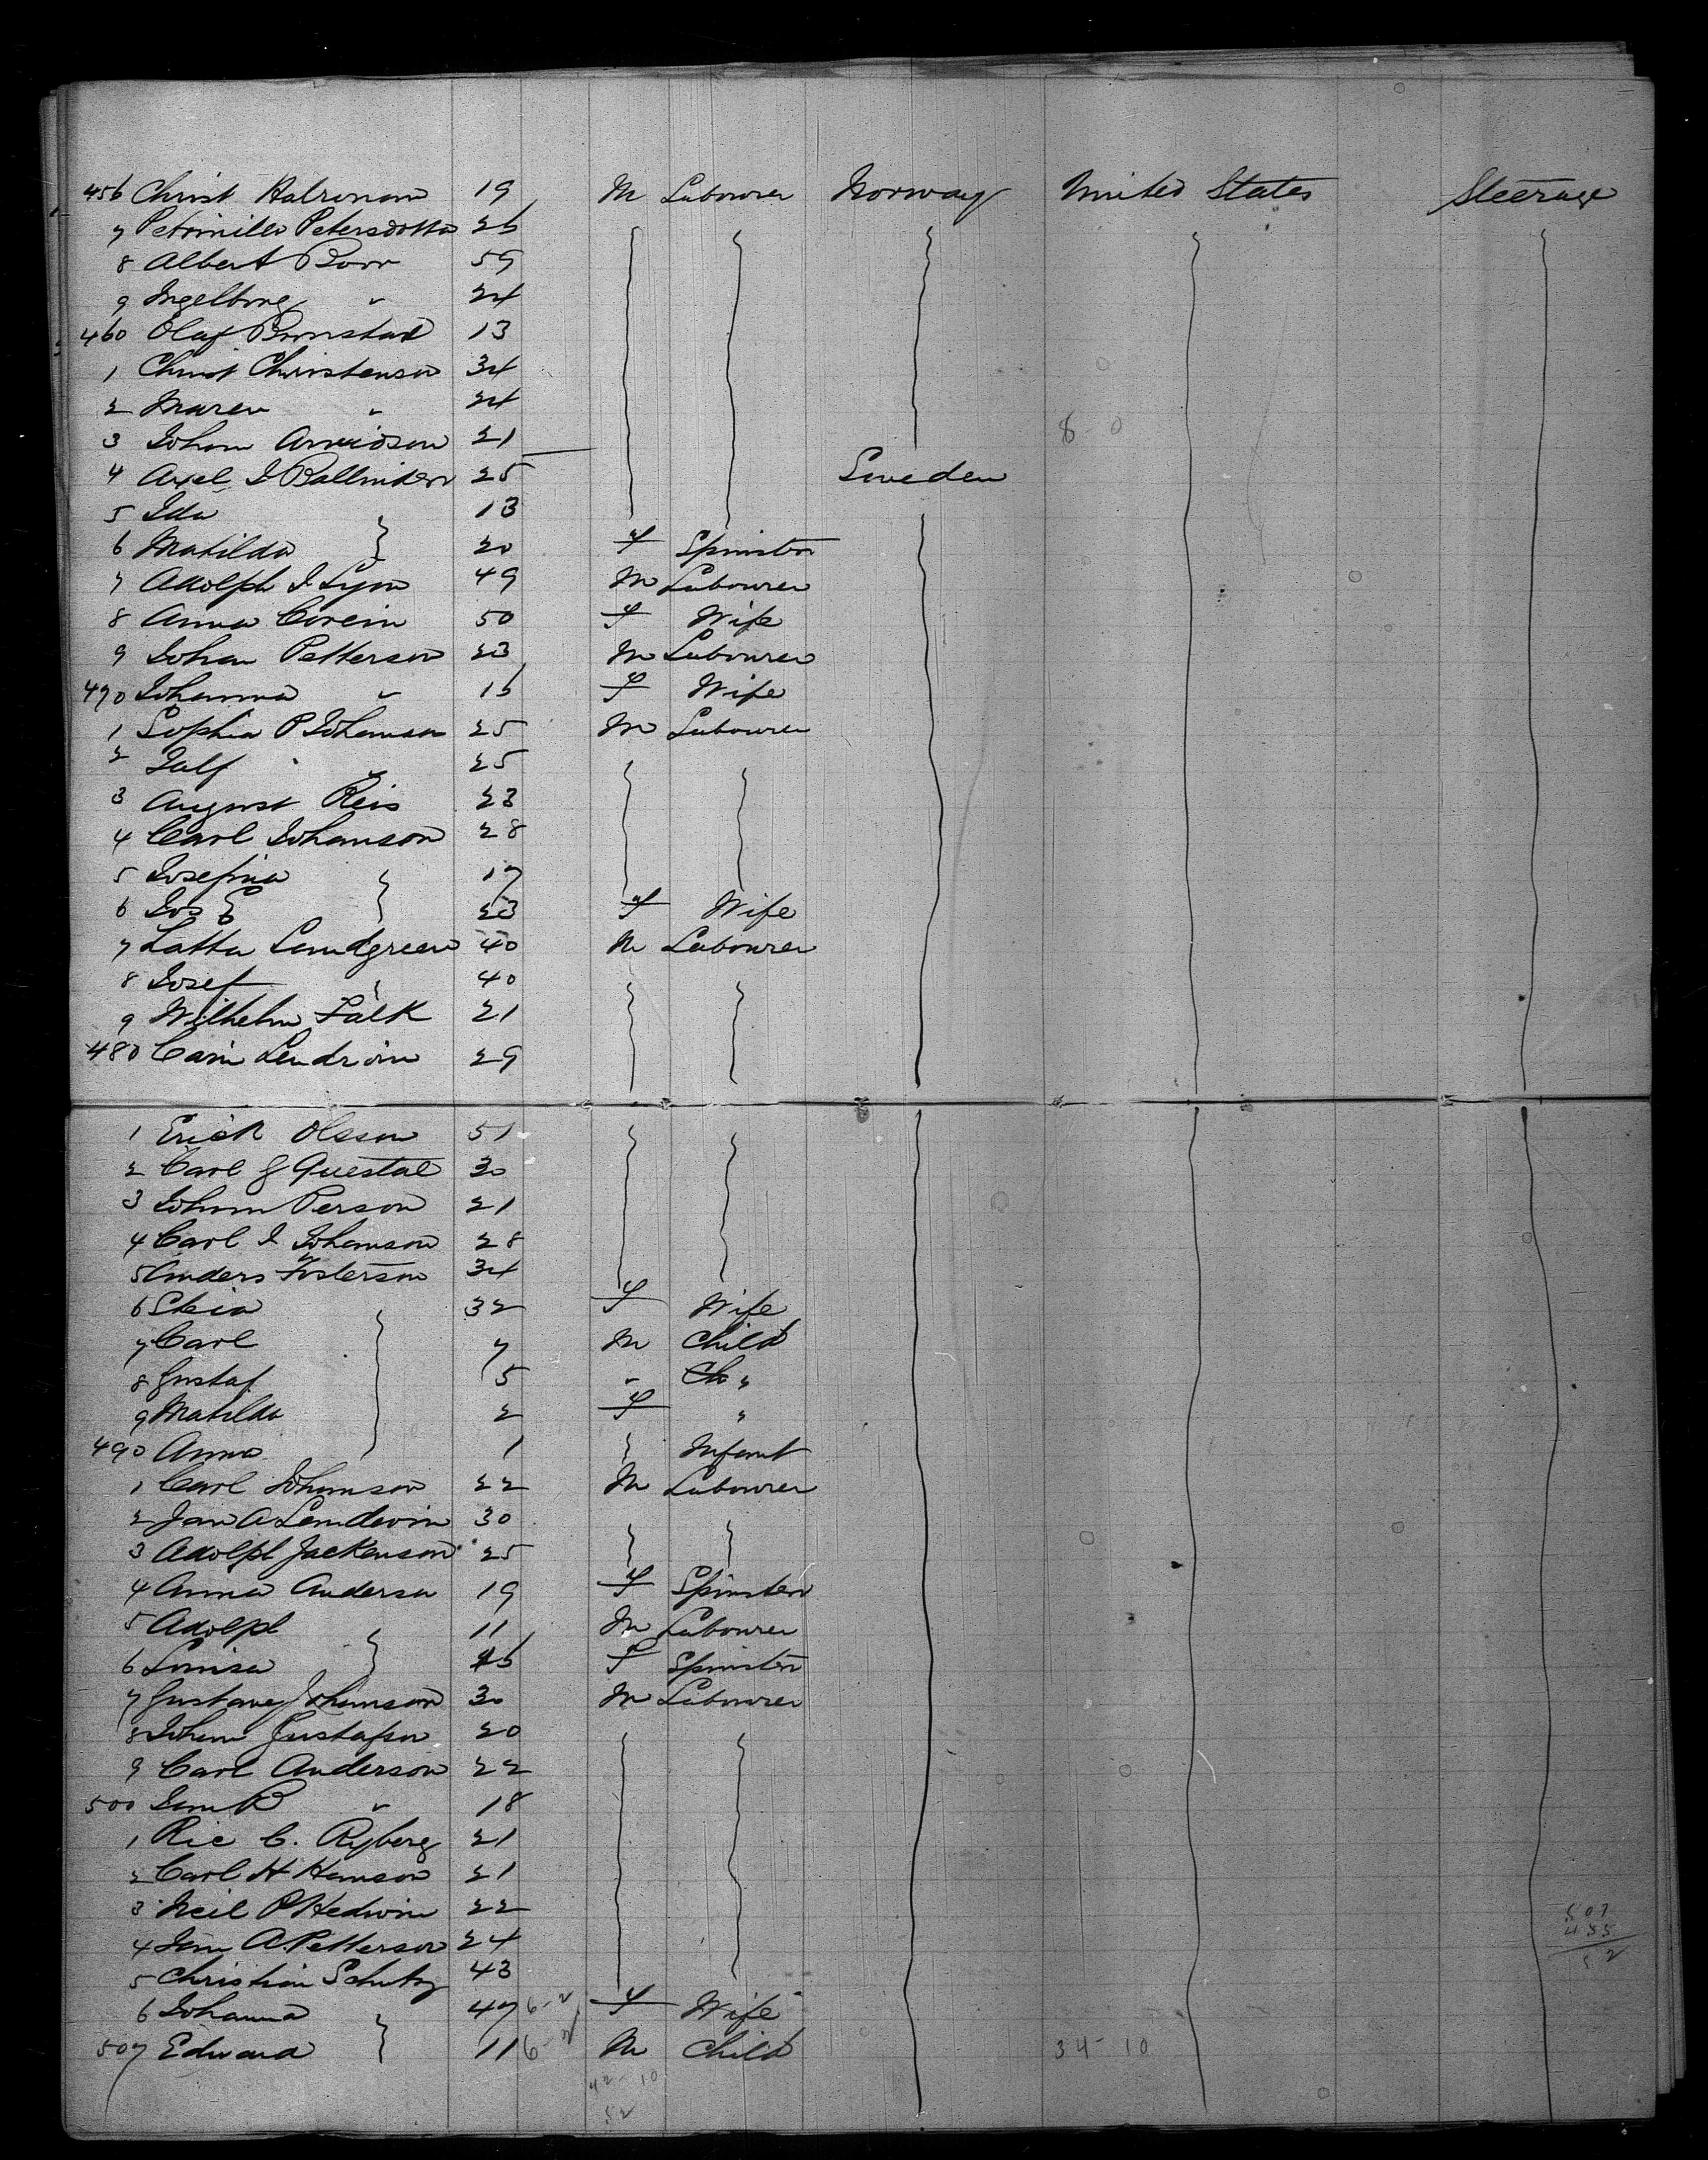 456 Christ Halvorson 19 M Labourer Norway United States Steerage
7 Petronilla Petersdotta 26
8 Albert Borr 59
9 Ingelborg " 24
460 Olaf Bronstad 13
1 Christ Christenson 34
2 Maren " 24
3 Johan Arvidson 21 8 0
4 Axel I 25 Sweden
5 Ida 13
6 Matilda 20 F Spinster
7 Adolph I Lyon 49 M Labourer
8 Anna 50 F Wife
9 Johan Petterson 23 M Labourer
470 Johanna " 16 F Wife
1 Sophia P Johanson 25 M Labourer
2 " 25
3 August Reis 23
4 Carl Johanson 28
5 Josefina 17
6 Jos E 23 F Wife
7 Latta Lundgreen 40 M Labourer
8 Josef " 40
9 Wilhelm Falk 21
480 29
1 Erick Olsson 51
2 Carl G Questal 30
3 Johan Person 21
4 Carl I Johanson 28
5 Anders 34
6 Stina 32 F Wife
7 Carl 7 M Child
8 Gustaf 5 " Ch "
9 Matilda 2 F "
490 Anna 1 Infant
1 Carl Johanson 22 M Labourer
2 Jan A 30
3 Adolph Jackenson 25
4 Anna Anderson 19 F Spinster
5 Adolph 11 M Labourer
6 Lovisa 16 F Spinster
7 Gustave Johanson 30 M Labourer
8 Johan Gustafson 20
9 Carl Anderson 22
500 " 18
1 Ric C. Ryberg 21
2 Carl H Hanson 21
3 Neil P Hedwin 22
4 A. Petterson 24
5 Christian Schultz 43
6 Johanna 47 6-2 F Wife
507 Edward 11 6-2 M Child 34-10
507
455
52
42-10
52